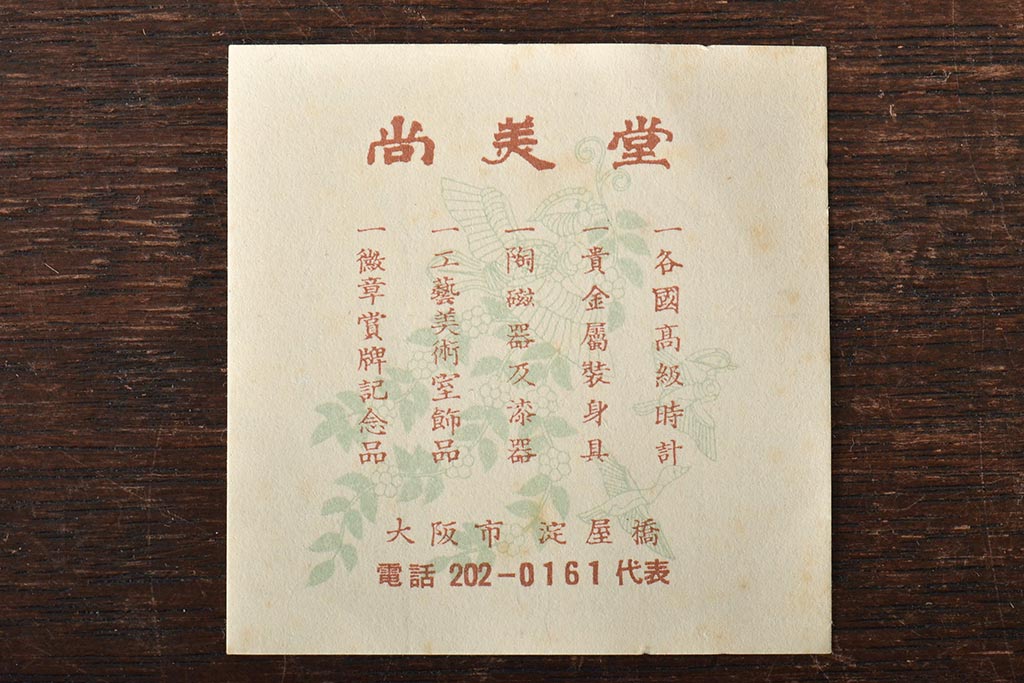 尚美堂
一各國高級時計
一貴金屬裝身具
一陶磁器及漆器
一工藝美術室飾品
一徽章賞牌記念品
大阪市 淀屋橋
電話 202-0161 代表